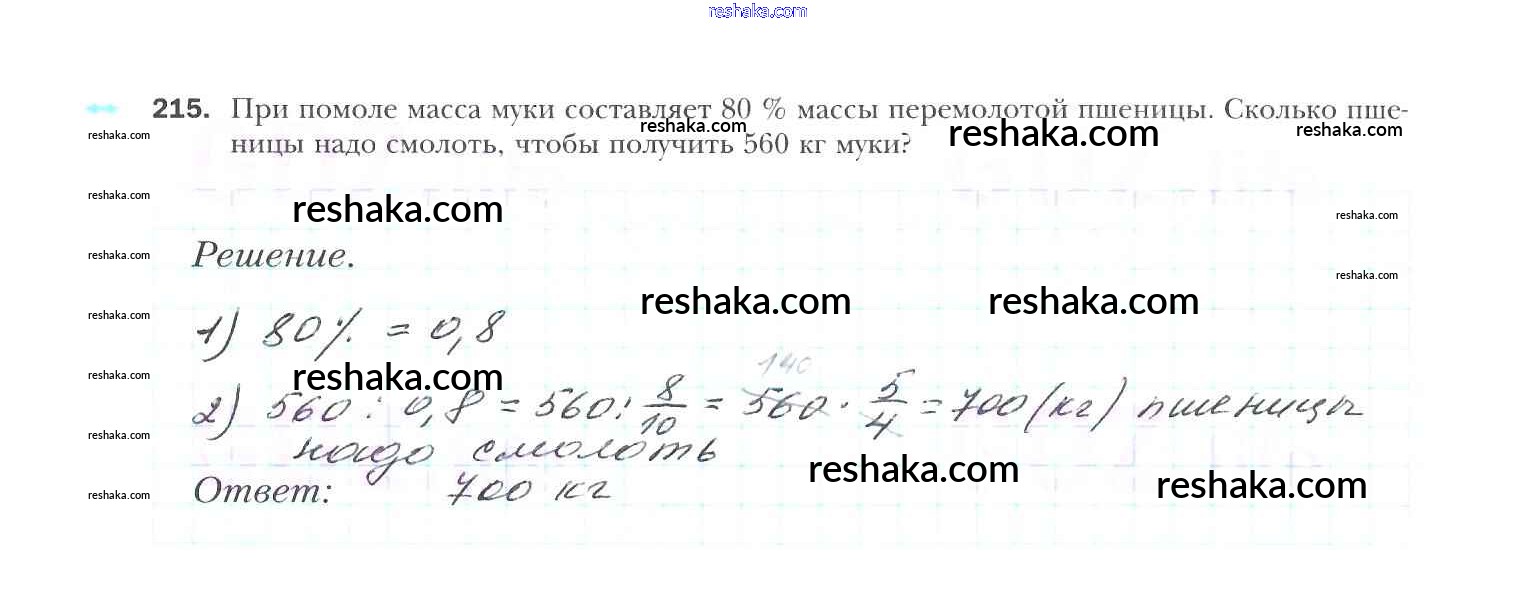 reshaka.com
215. При помоле масса муки составляет 80 % массы перемолотой пшеницы. Сколько пше-
reshaka.com reshaka.com reshaka.com reshaka.com
ницы надо смолоть, чтобы получить 560 кг муки?
reshaka.com reshaka.com reshaka.com
Решение.
reshaka.com reshaka.com
reshaka.com reshaka.com reshaka.com
1) 80% = 0,8
reshaka.com reshaka.com
140
2) 560 : 0,8 = 560 : 8/10 = 560 · 5/4 = 700 (кг) пшеницы
reshaka.com
надо смолоть
reshaka.com reshaka.com
Ответ: 700 кг
reshaka.com